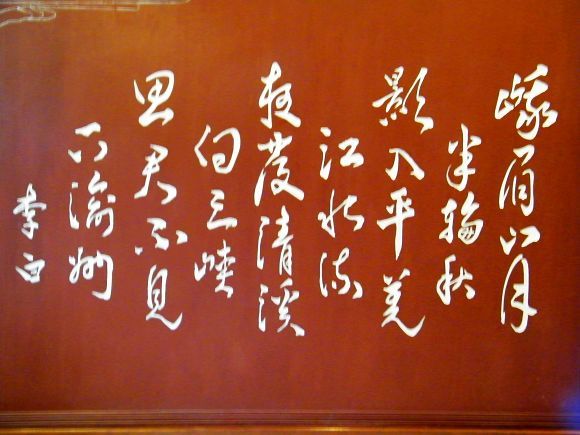 峨眉山月
半輪秋
影入平羌
江水流
夜發清溪
向三峽
思君不見
下渝州
李白